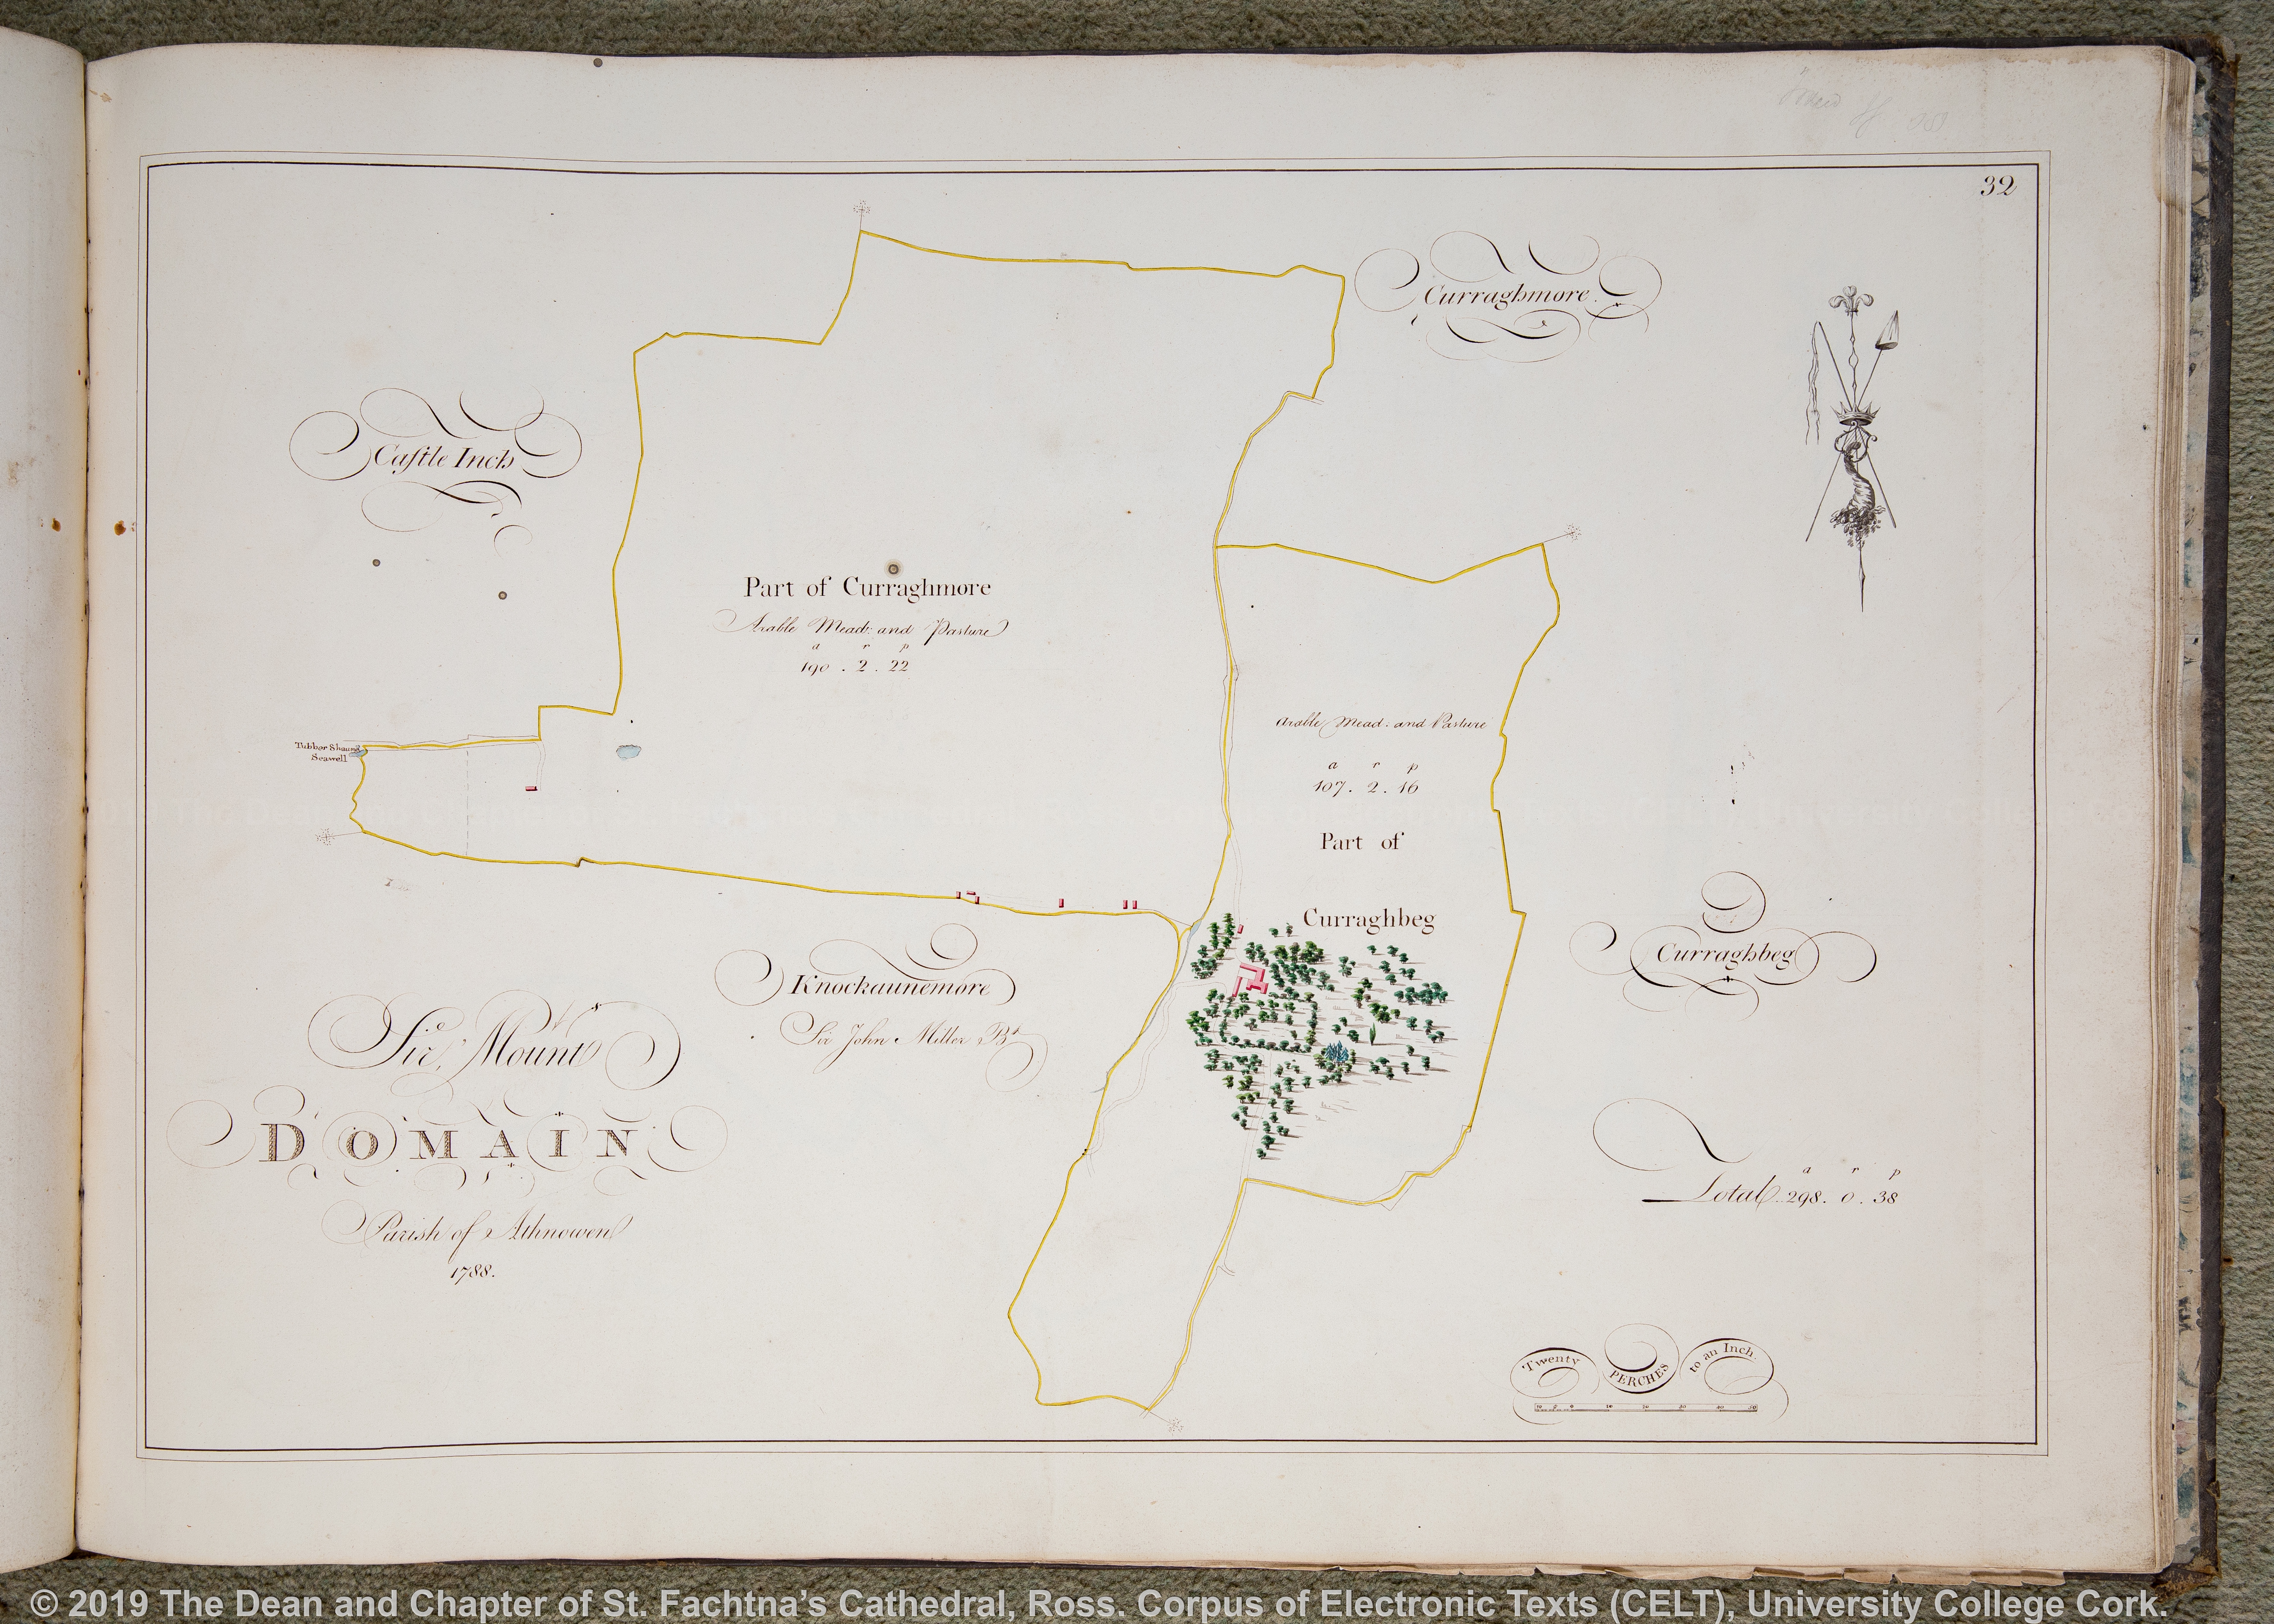 32
Curraghmore
Castle Inch
Part of Curraghmore
Arable Mead: and Pasture
a r p
190 . 2 . 22
Arable Mead: and Pasture
a r p
107 . 2 . 16
Part of
Curraghbeg
Tubber Shaung
Seawell
Curraghbeg
Knockaunemore
Sir John Miller Bt
Mount
DOMAIN
Parish of Athnowen
1788.
a r p
Total 298 . 0 . 38
Twenty PERCHES to an Inch.
© 2019 The Dean and Chapter of St. Fachtna's Cathedral, Ross. Corpus of Electronic Texts (CELT), University College Cork.